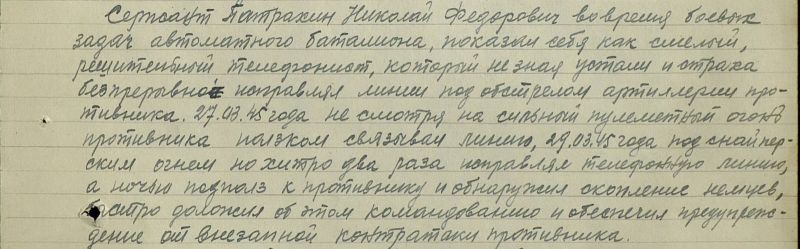 Сержант Патрахин Николай Федорович во время боевых
задач автоматного баталиона, показал себя как смелый,
решительный телефонист, который не зная устали и страха
безпрерывно исправлял линии под обстрелом артиллерии про-
тивника. 27.03.45 года не смотря на сильный пулеметный огонь
противника ползком связывал линию, 29.03.45 года под снайпер-
ским огнем но хитро два раза исправлял телефонную линию,
а ночью подполз к противнику и обнаружил скопление немцев,
быстро доложил об этом командованию и обеспечил предупреж-
дение от внезапной контратаки противника.